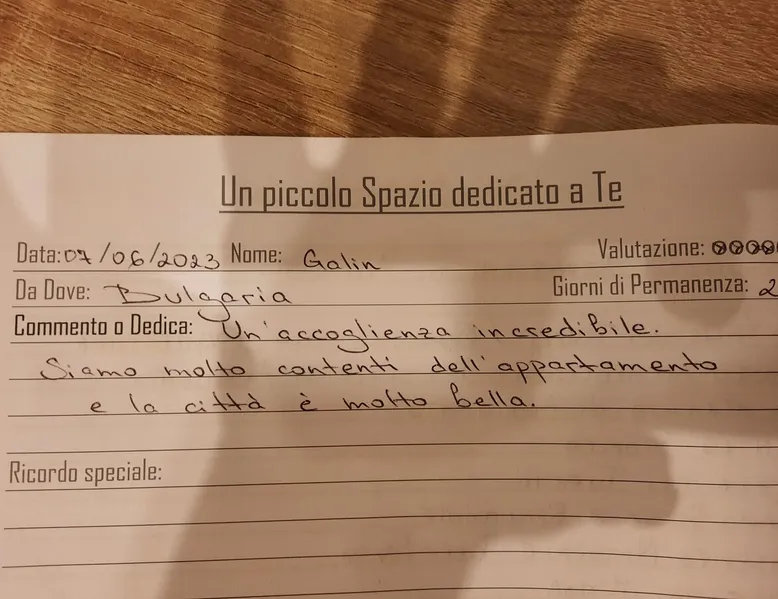 Un piccolo Spazio dedicato a Te
Data: 07/06/2023 Nome: Galin Valutazione:
Da Dove: Bulgaria Giorni di Permanenza: 2
Commento o Dedica: Un'accoglienza incredibile.
Siamo molto contenti dell'appartamento
e la città è molto bella.
Ricordo speciale: